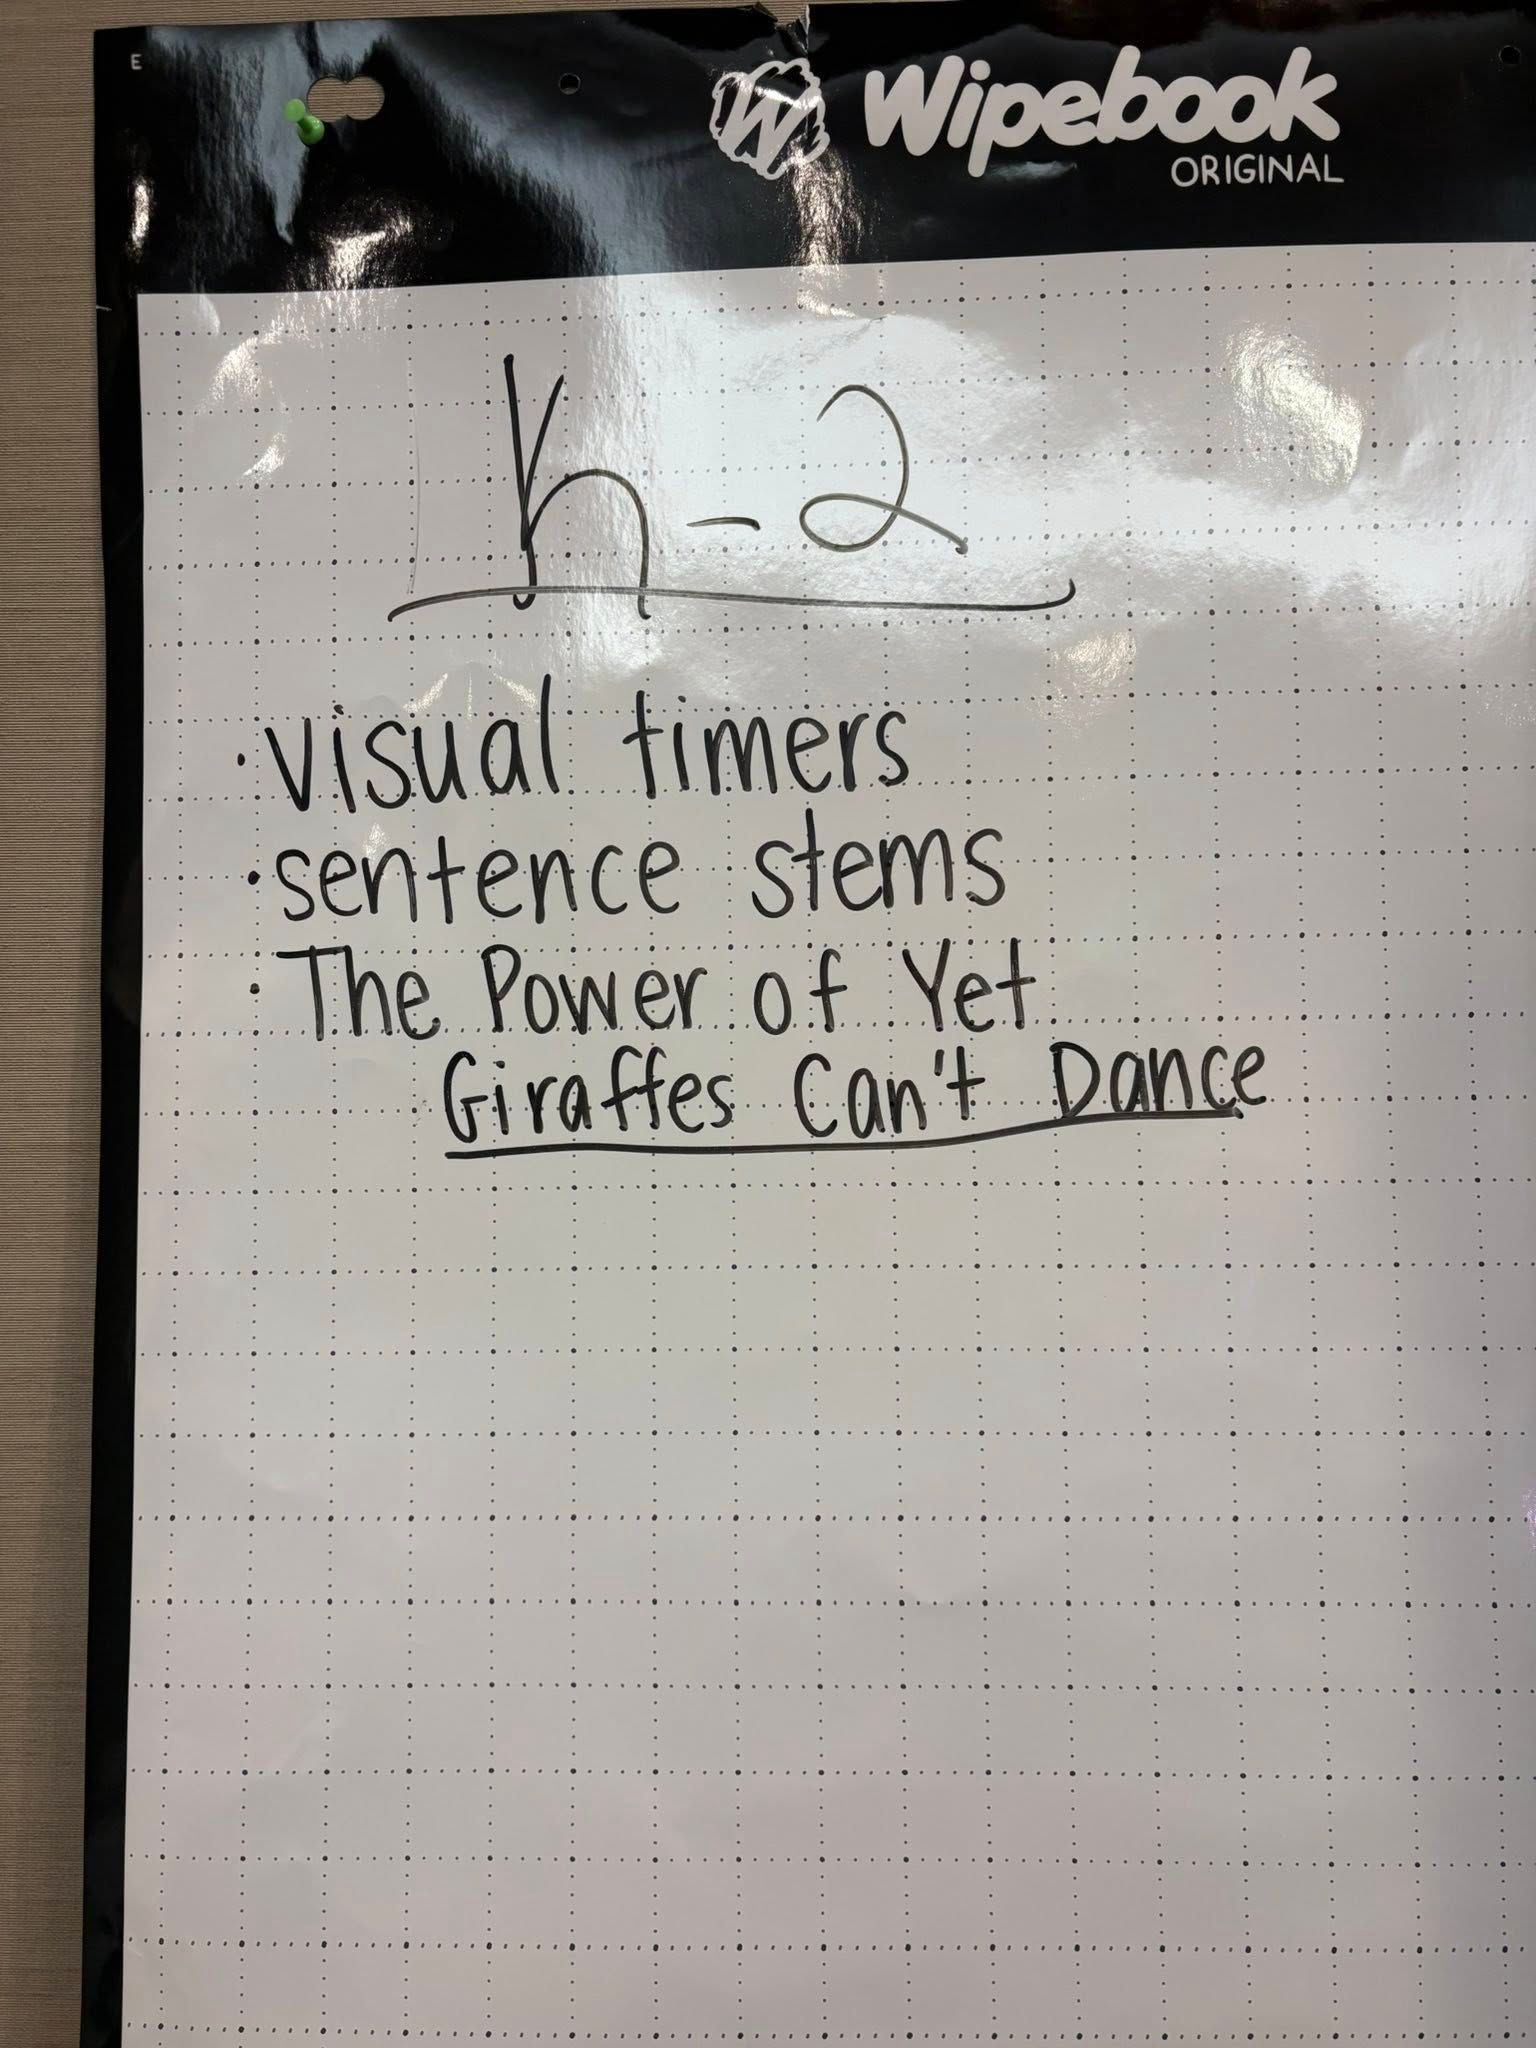 E
W Wipebook
ORIGINAL
K-2
· visual timers
· sentence stems
· The Power of Yet
Giraffes Can't Dance